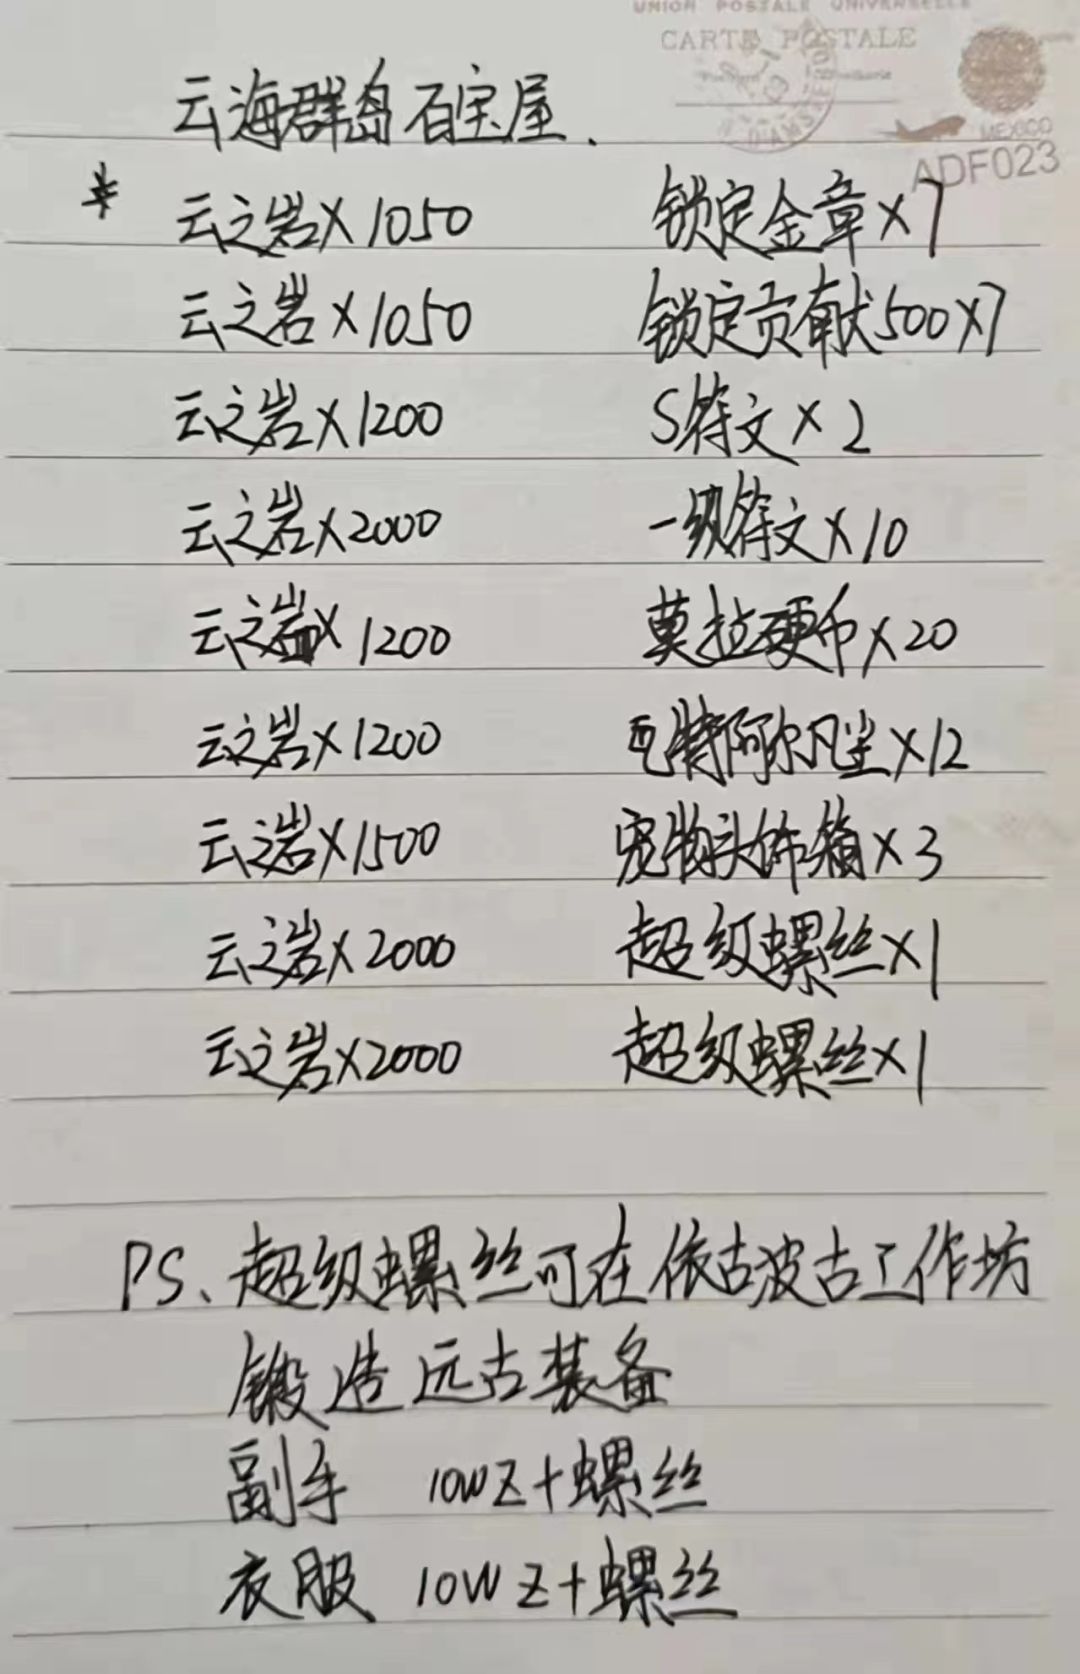 UNION POSTALE UNIVERSELLE
CARTE POSTALE
MEXICO
ADF023
云海群岛百宝屋.
* 云之岩×1050 锁定金章×7
云之岩×1050 锁定贡献500×7
云之岩×1200 S符文×2
云之岩×2000 一级符文×10
云之岩×1200 莫拉硬币×20
云之岩×1200 瓦特阿尔凡尘×12
云之岩×1500 宠物头饰箱×3
云之岩×2000 超级螺丝×1
云之岩×2000 超级螺丝×1
PS、超级螺丝可在依古波古工作坊
锻造远古装备
副手 10W Z+螺丝
衣服 10W Z+螺丝